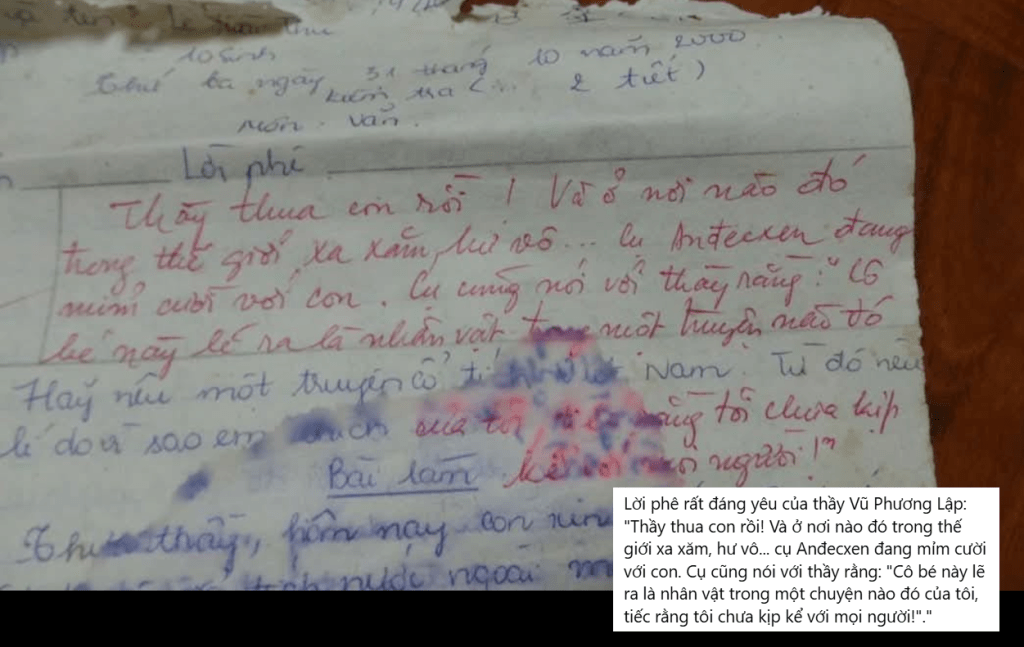 và tên: Lê
10 Sinh
Thứ ba ngày 31 tháng 10 năm 2000
kiểm tra ( 2 tiết )
Môn : Văn.
Lời phê
Thầy thua con rồi ! Và ở nơi nào đó
trong thế giới xa xăm, hư vô... Cụ Anđecxen đang
mỉm cười với con. Cụ cũng nói với thầy rằng: "Cô
bé này lẽ ra là nhân vật trong một truyện nào đó
Hãy nêu một truyện cổ tích Nam. Từ đó nêu
lí do vì sao em
của tôi, tiếc rằng tôi chưa kịp
kể với mọi người!"
Bài làm
thầy, hôm nay con xin
tích nước ngoài
Lời phê rất đáng yêu của thầy Vũ Phương Lập:
"Thầy thua con rồi! Và ở nơi nào đó trong thế
giới xa xăm, hư vô... cụ Anđecxen đang mỉm cười
với con. Cụ cũng nói với thầy rằng: "Cô bé này lẽ
ra là nhân vật trong một chuyện nào đó của tôi,
tiếc rằng tôi chưa kịp kể với mọi người!"."